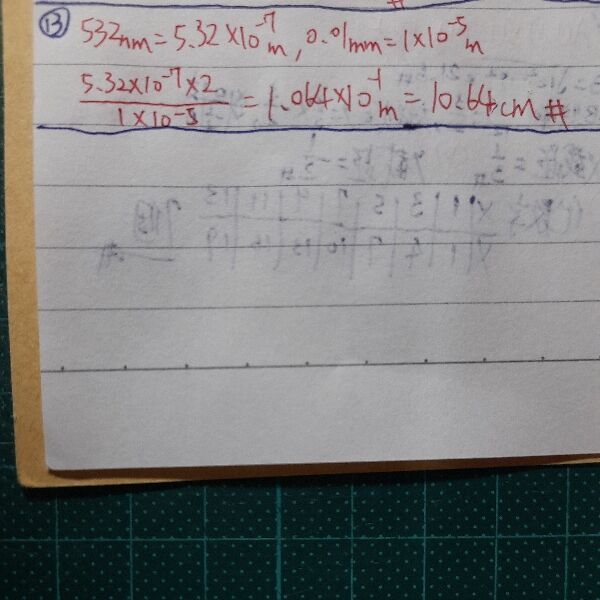 ⑬ 532nm = 5.32×10⁻⁷m, 0.01mm = 1×10⁻⁵m
5.32×10⁻⁷×2 / 1×10⁻⁵ = 1.064×10⁻¹m = 10.64cm #